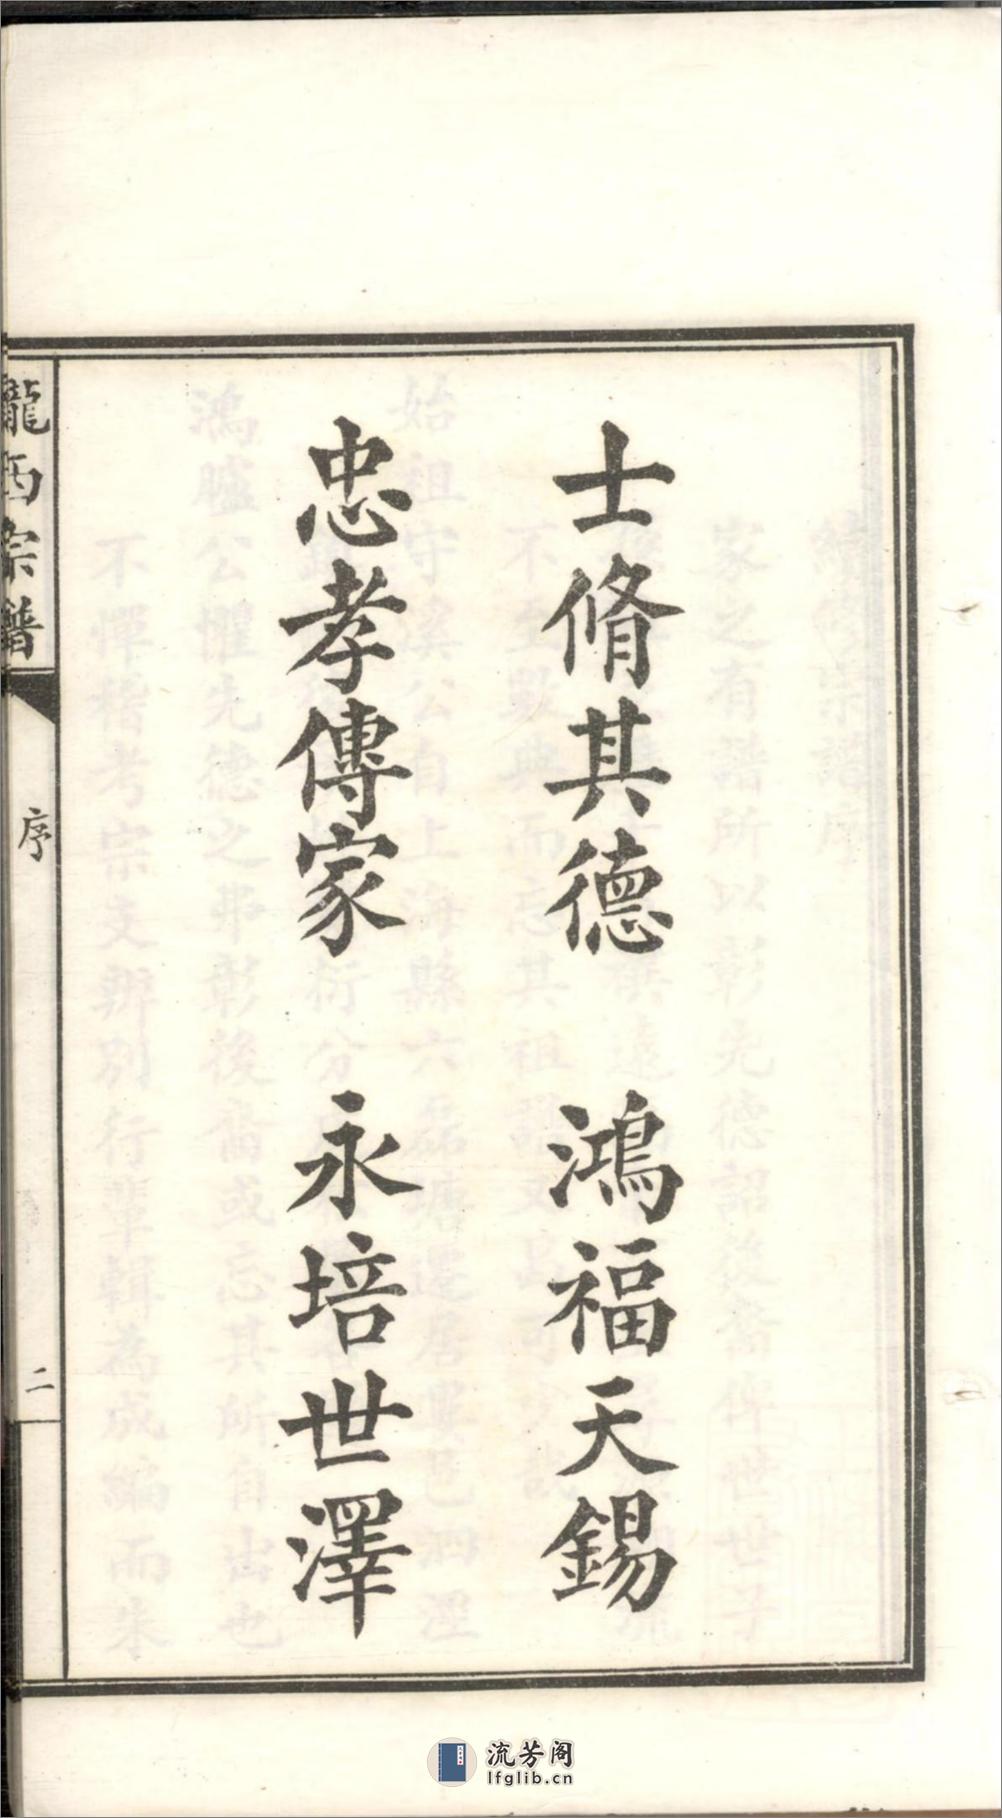 士脩其德 鴻福天錫
忠孝傳家 永培世澤
隴西宗譜
序
二
流芳阁
lfglib.cn